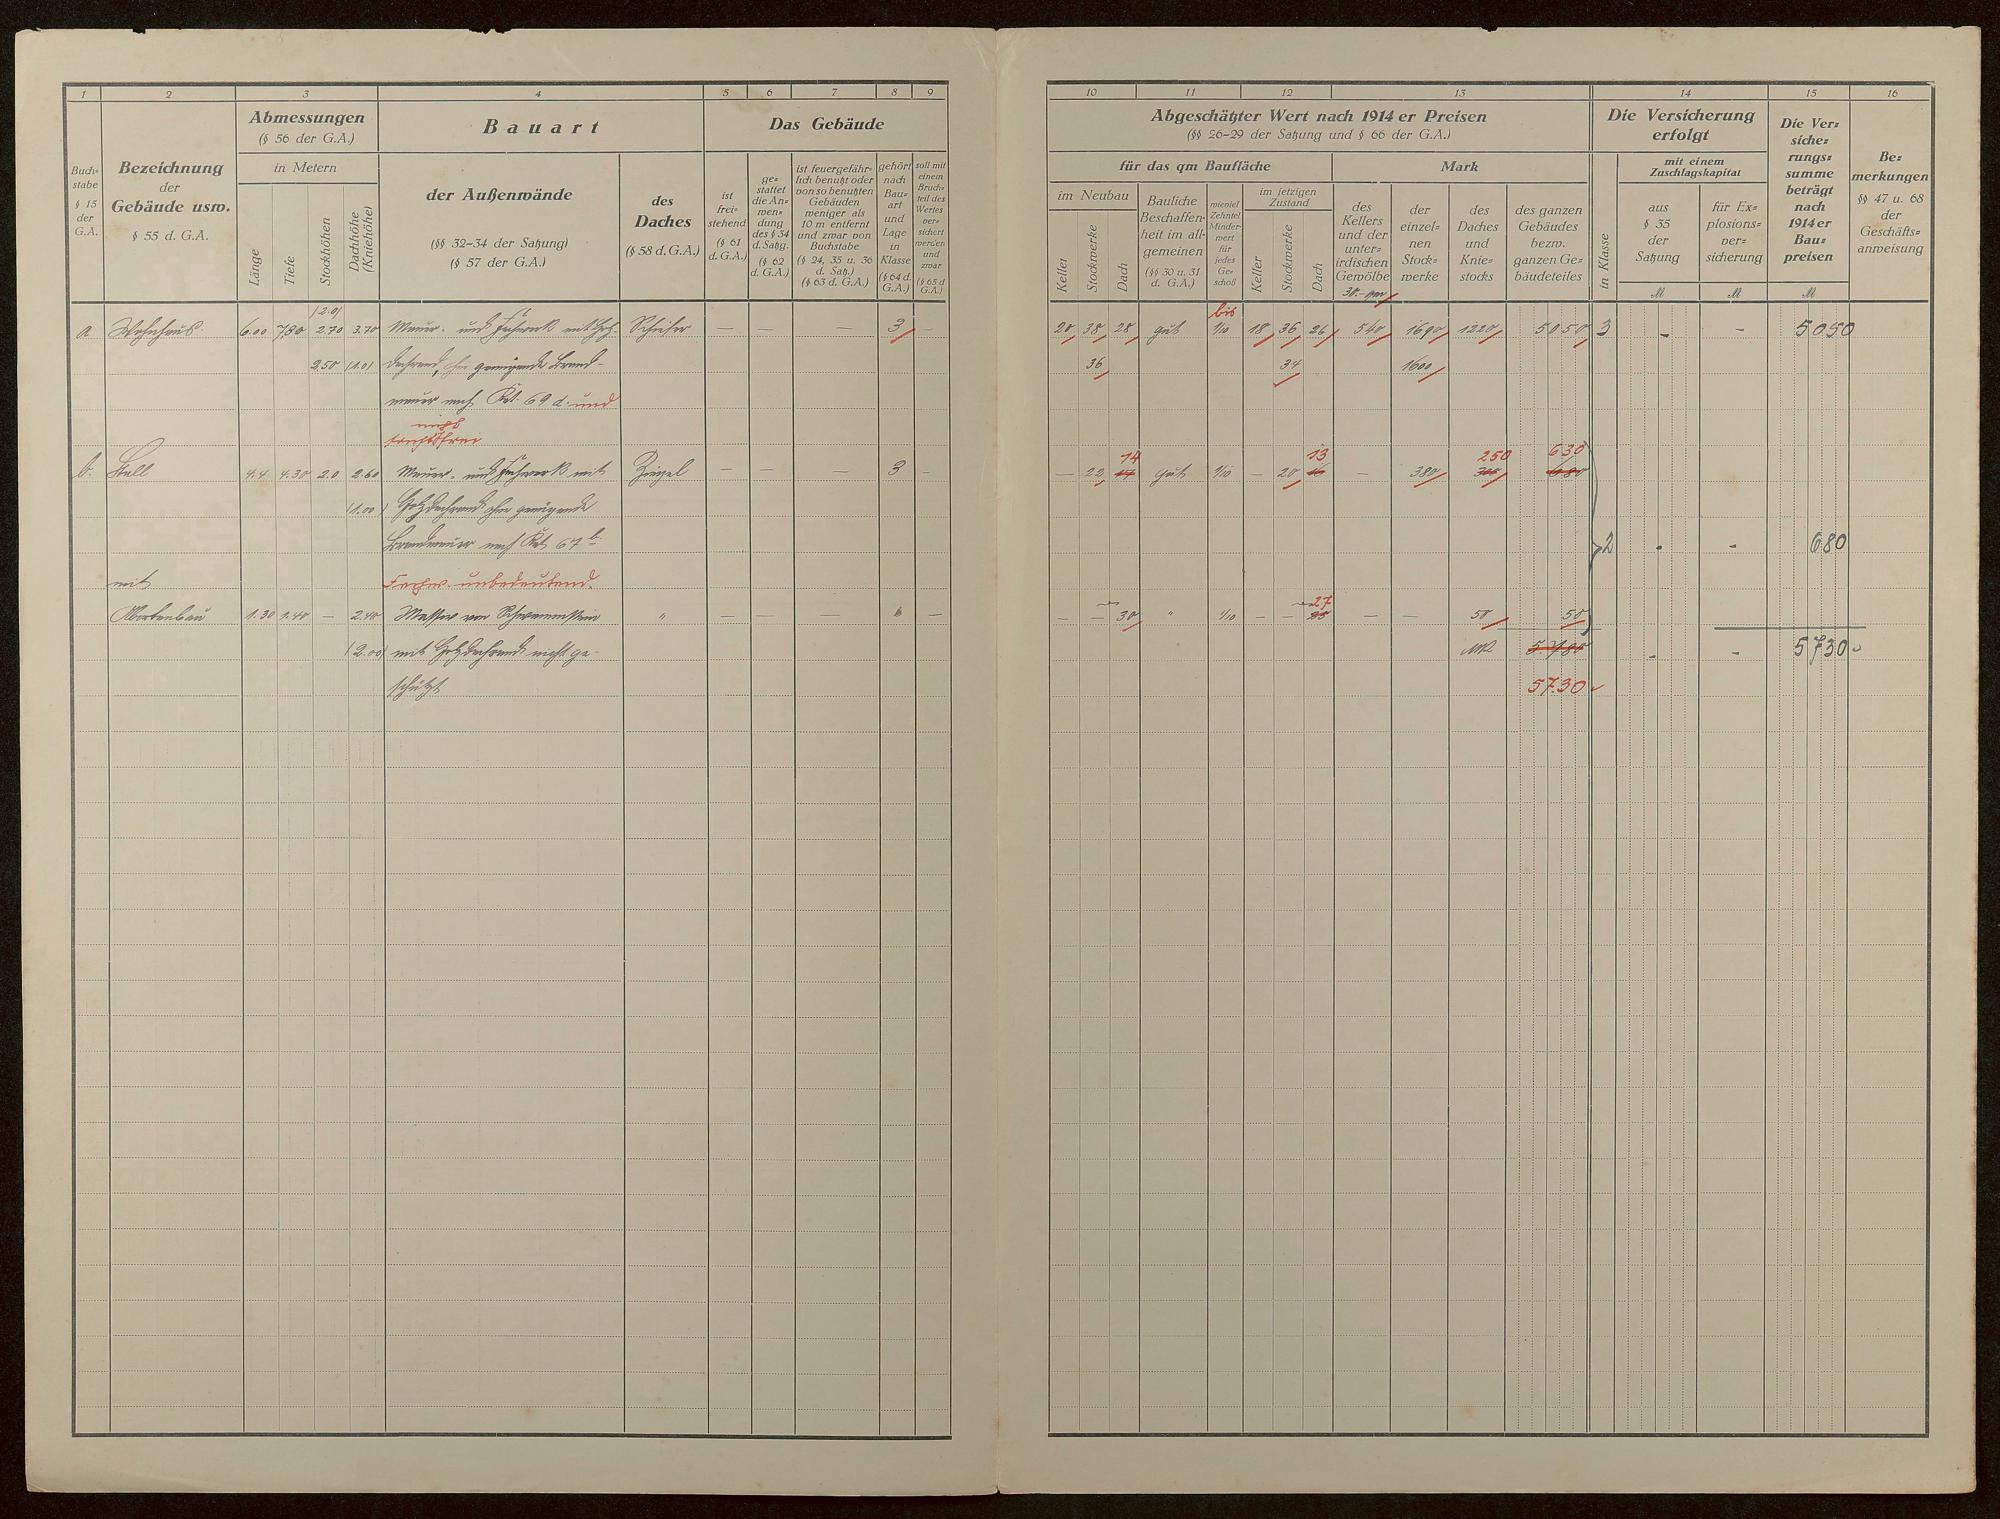 1 2 3 4 5 6 7 8 9
Buch=
stabe
§ 15
der
G.A.
Bezeichnung
der
Gebäude usw.
§ 55 d. G.A.
Abmessungen
(§ 56 der G.A.)
in Metern
Länge
Tiefe
Stockhöhen
Dachhöhe
(Kniehöhe)
Bauart
der Außenwände
(§§ 32-34 der Satzung)
(§ 57 der G.A.)
des
Daches
(§ 58 d. G.A.)
Das Gebäude
ist
frei=
stehend
(§ 61
d. G.A.)
ge=
stattet
die An=
wen=
dung
des § 34
d. Satzg.
(§ 62
d. G.A.)
ist feuergefähr=
lich benutzt oder
von so benutzten
Gebäuden
weniger als
10 m entfernt
und zwar von
Buchstabe
(§ 24, 35 u. 36
d. Satz.)
(§ 63 d. G.A.)
gehört
nach
Bau=
art
und
Lage
in
Klasse
(§ 64 d.
G.A.)
soll mit
einem
Bruch=
teil des
Wertes
ver=
sichert
werden
und
zwar
(§ 65 d.
G.A.)
(2.0)
a Wohnhaus 6.00 7.80 2.70 3.70 Mauer- und Fachwerk mit Holz- Schiefer — — — 3 —
2.50 (1.0) dachrand, ohne genügende Brand-
mauer nach Kat. 69 a. und
nicht
fruchtfrei
b. Stall 4.4 4.30 2.0 2.60 Mauer- und Fachwerk mit Ziegel — — — 3 —
(1.00) Holzdachrand ohne genügende
Brandmauer nach Kat. 67 b.
mit Fachw. unbedeutend.
Abortanbau 1.30 1.40 — 2.40 Massiv von Schwemmstein " — — — " —
(2.00) mit Holzdachrand nicht ge-
schützt
10 11 12 13 14 15 16
Abgeschätzter Wert nach 1914 er Preisen
(§§ 26-29 der Satzung und § 66 der G.A.)
für das qm Baufläche
im Neubau
Keller
Stockwerke
Dach
Bauliche
Beschaffen=
heit im all=
gemeinen
(§§ 30 u. 31
d. G.A.)
wieviel
Zehntel
Minder=
wert
für
jedes
Ge=
schoß
im jetzigen
Zustand
Keller
Stockwerke
Dach
Mark
des
Kellers
und der
unter=
irdischen
Gewölbe
der
einzel=
nen
Stock=
werke
des
Daches
und
Knie=
stocks
des ganzen
Gebäudes
bezw.
ganzen Ge=
bäudeteiles
Die Versicherung
erfolgt
in Klasse
mit einem
Zuschlagskapital
aus
§ 35
der
Satzung
für Ex=
plosions=
ver=
sicherung
Die Ver=
siche=
rungs=
summe
beträgt
nach
1914 er
Bau=
preisen
Be=
merkungen
§§ 47 u. 68
der
Geschäfts=
anweisung
M M M
30.- qm
bis
20 38 28 gut 1/10 18 36 26 540 1690 1220 5050 3 - - 5050
36 34 1600
14 13 250 630
— 22 17 gut 1/10 — 20 16 — 380 300 680
2 - - 680
27
— — 30 " 1/10 — — 25 — — 50 50
MK 5.780 - - 5730
5730